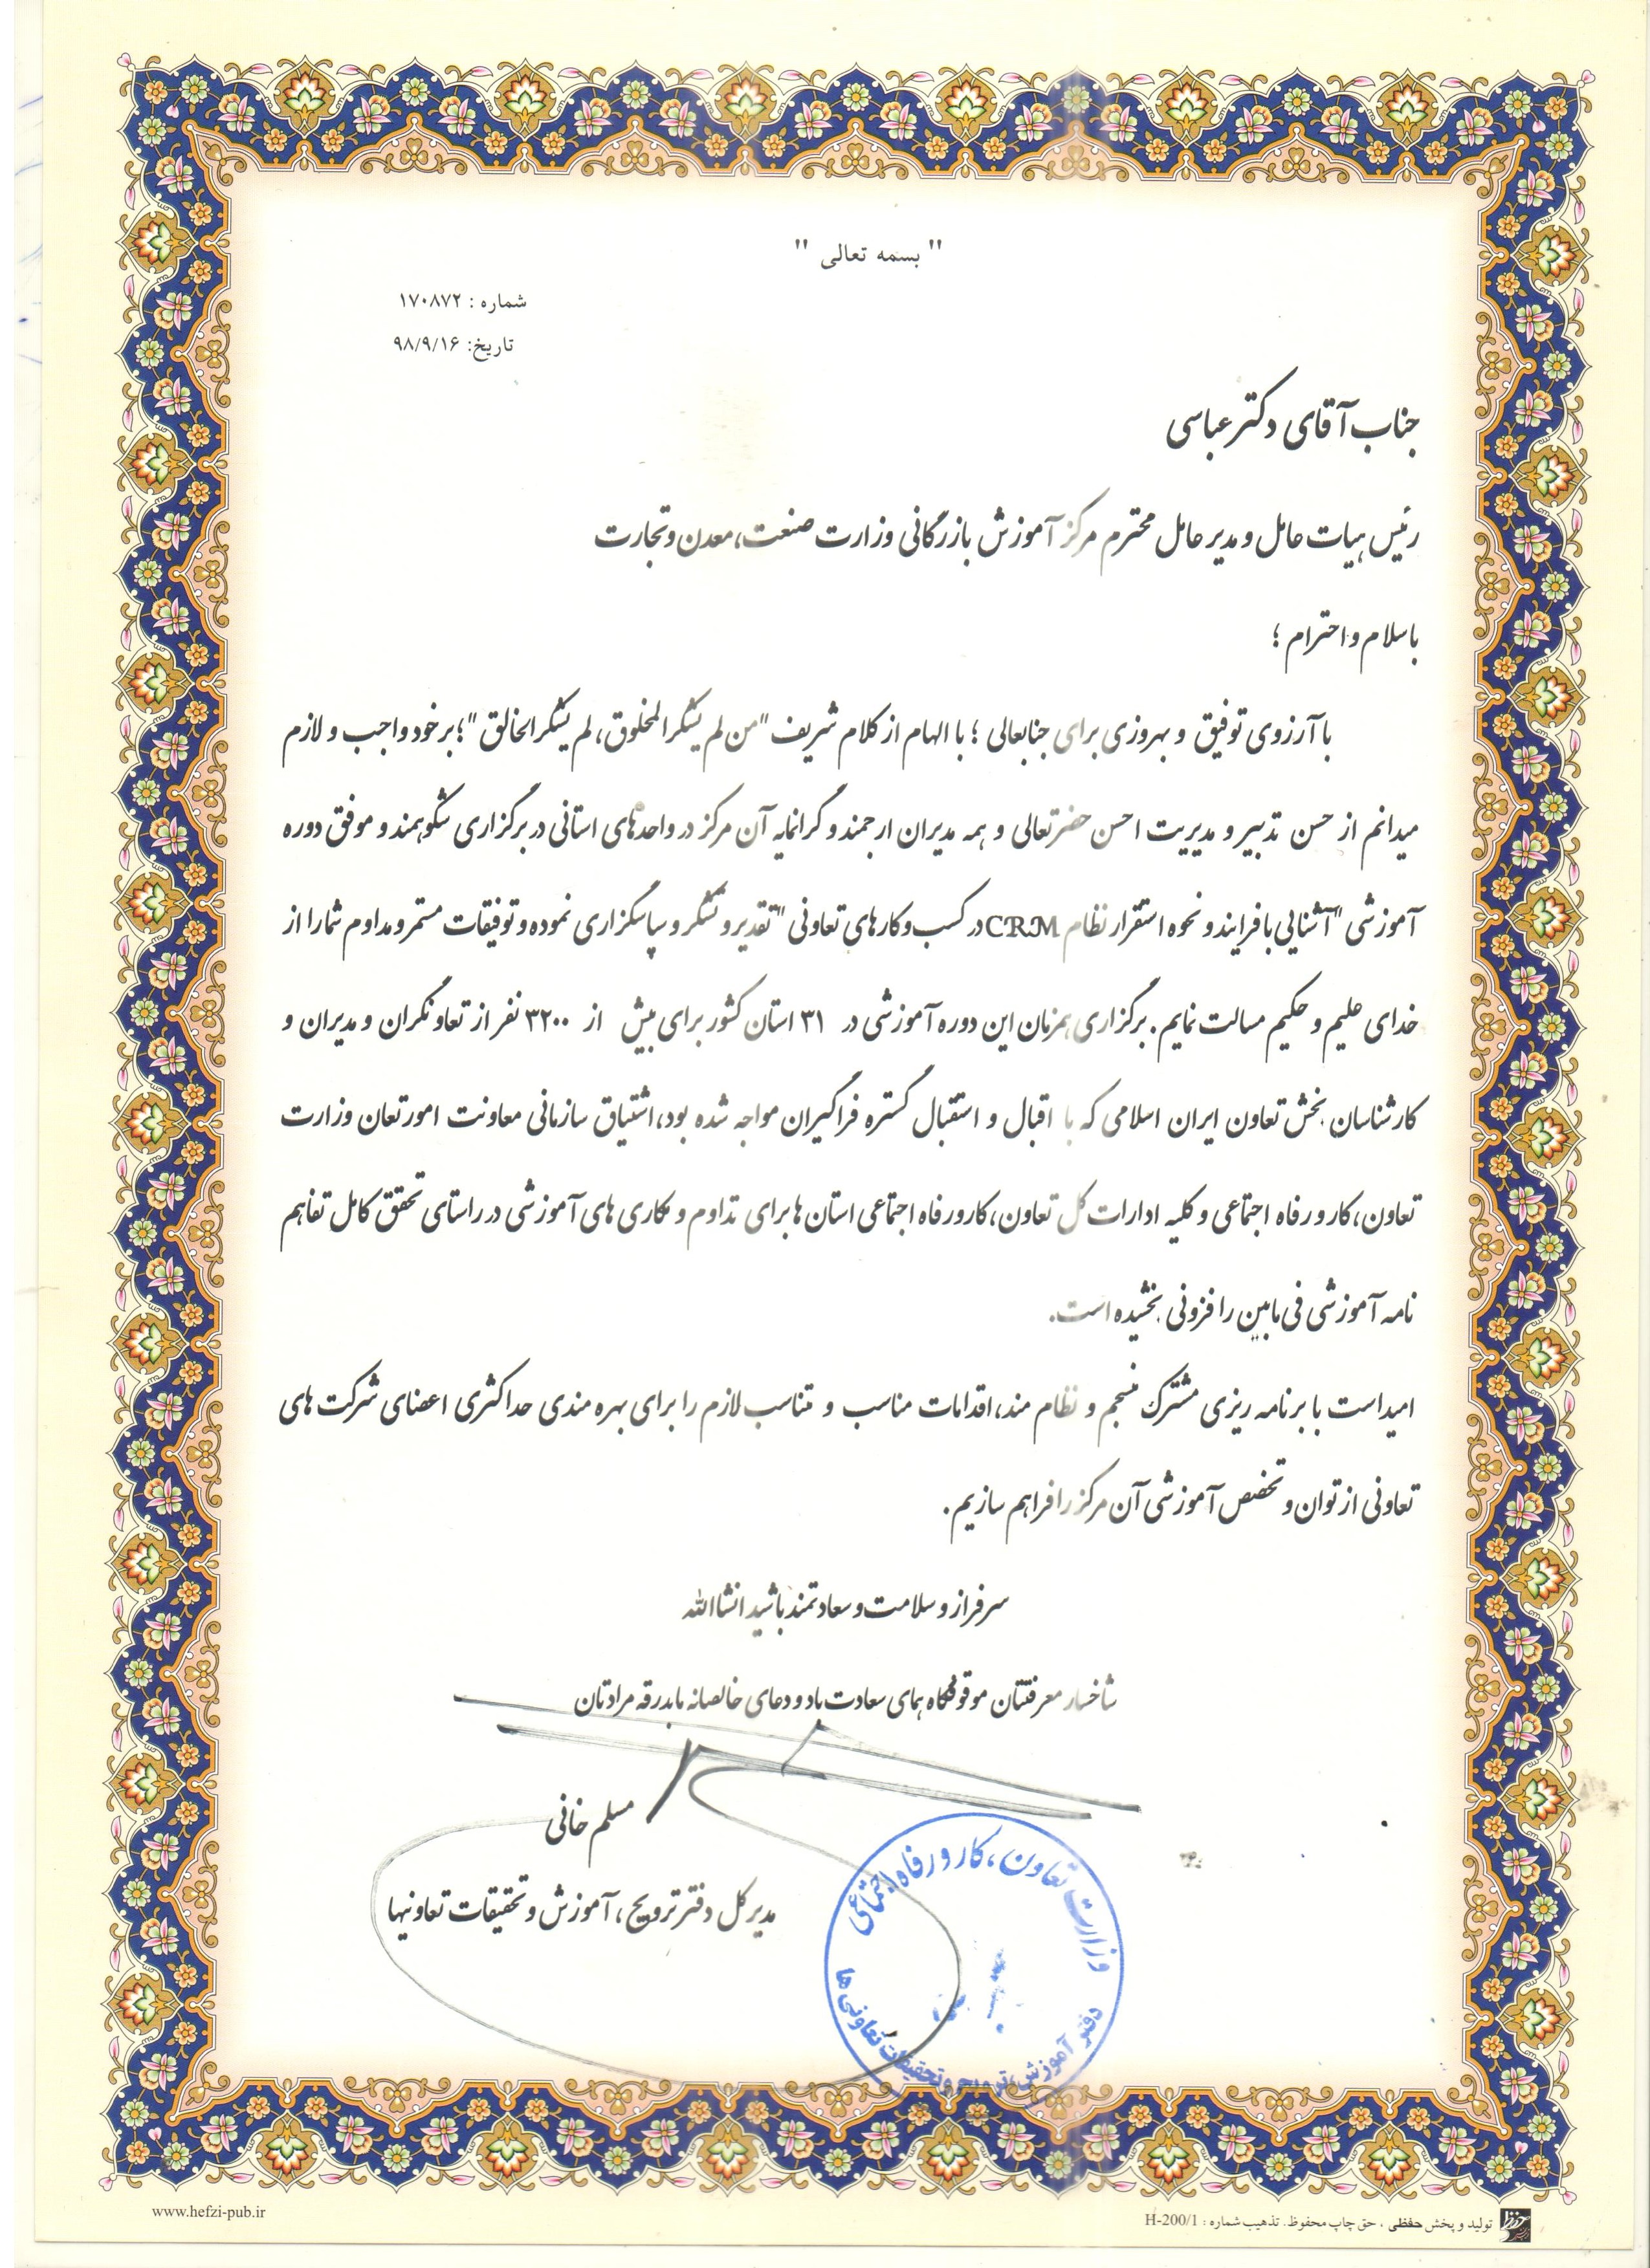 " بسمه تعالی "
شماره : ۱۷۰۸۷۲
تاریخ: ۹۸/۹/۱۶
جناب آقای دکتر عباسی
رئیس هیات عامل و مدیر عامل محترم مرکز آموزش بازرگانی وزارت صنعت، معدن و تجارت
با سلام و احترام ؛
با آرزوی توفیق و بهروزی برای جنابعالی ؛ با الهام از کلام شریف "من لم یشکر المخلوق، لم یشکر الخالق"؛ بر خود واجب و لازم
میدانم از حسن تدبیر و مدیریت احسن حضرتعالی و همه مدیران ارجمند و گرانمایه آن مرکز در واحدهای استانی در برگزاری شکوهمند و موفق دوره
آموزشی "آشنایی با فرایند و نحوه استقرار نظام CRM در کسب و کارهای تعاونی" تقدیر و تشکر و سپاسگزاری نموده و توفیقات مستمر و مداوم شما را از
خدای علیم و حکیم مسالت نمایم. برگزاری همزمان این دوره آموزشی در ۳۱ استان کشور برای بیش از ۳۲۰۰ نفر از تعاونگران و مدیران و
کارشناسان بخش تعاون ایران اسلامی که با اقبال و استقبال گستره فراگیران مواجه شده بود، اشتیاق سازمانی معاونت امور تعان وزارت
تعاون، کار و رفاه اجتماعی و کلیه ادارات کل تعاون، کار و رفاه اجتماعی استان ها برای تداوم همکاری های آموزشی در راستای تحقق کامل تفاهم
نامه آموزشی فی مابین را فزونی بخشیده است.
امید است با برنامه ریزی مشترک منسجم و نظام مند، اقدامات مناسب و متناسب لازم را برای بهره مندی حداکثری اعضای شرکت های
تعاونی از توان و تخصص آموزشی آن مرکز را فراهم سازیم.
سرفراز و سلامت و سعادتمند باشید انشاالله
شاخسار معرفتتان موقوفگاه همای سعادت باد و دعای خالصانه ما بدرقه مرادتان
مسلم خانی
مدیر کل دفتر ترویج، آموزش و تحقیقات تعاونیها
وزارت تعاون، کار و رفاه اجتماعی
دفتر آموزش، ترویج و تحقیقات تعاونی ها
www.hefzi-pub.ir
تولید و پخش حفظی ، حق چاپ محفوظ. تذهیب شماره : H-200/1